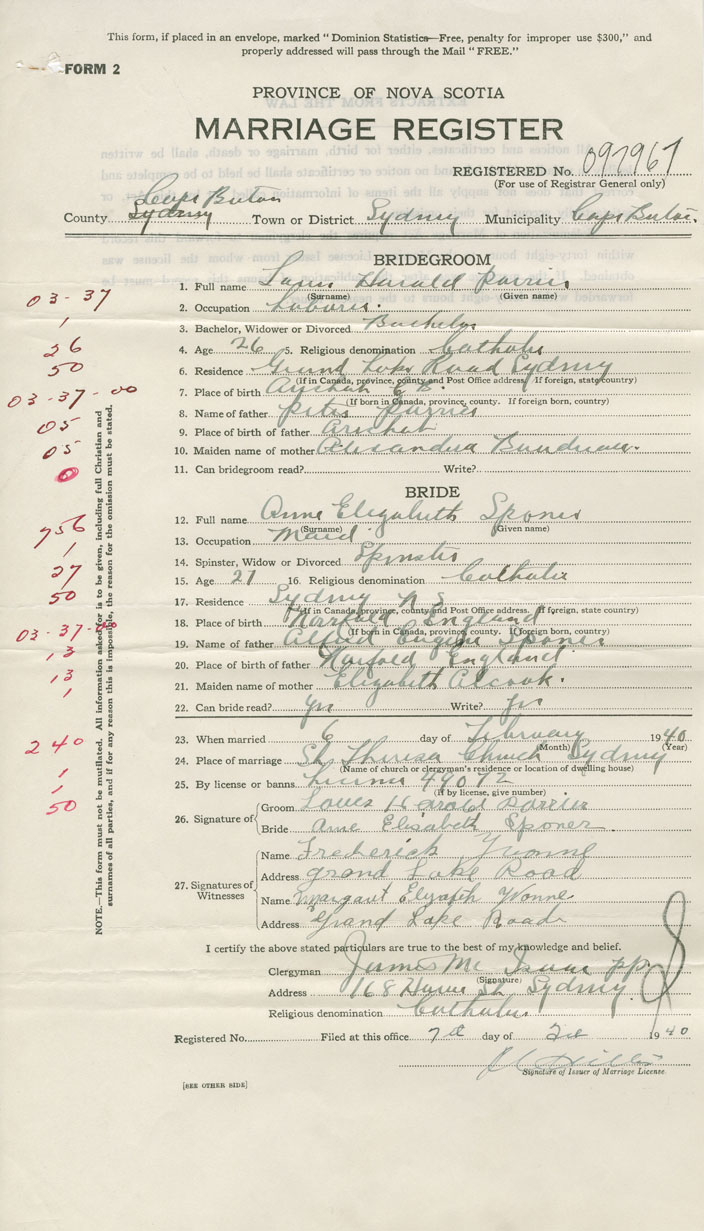 This form, if placed in an envelope, marked "Dominion Statistics—Free, penalty for improper use $300," and
properly addressed will pass through the Mail "FREE."
FORM 2
PROVINCE OF NOVA SCOTIA
MARRIAGE REGISTER
REGISTERED No. 097967
(For use of Registrar General only)
Cape Breton
County Sydney Town or District Sydney Municipality Cape Breton.
BRIDEGROOM
1. Full name Louis Harald Parris
(Surname) (Given name)
2. Occupation Laborer.
3. Bachelor, Widower or Divorced Bachelor
4. Age 26 5. Religious denomination Catholic
6. Residence Grand Lake Road Sydney
(If in Canada, province, county and Post Office address. If foreign, state country)
7. Place of birth Arichat C.B.
(If born in Canada, province, county. If foreign born, country)
8. Name of father Peter Parries
9. Place of birth of father Arichat
10. Maiden name of mother Alexandra
11. Can bridegroom read? Write?
BRIDE
12. Full name Anne Elizabeth Sponer
(Surname) (Given name)
13. Occupation Maid
14. Spinster, Widow or Divorced Spinster
15. Age 27 16. Religious denomination Catholic
17. Residence Sydney N S
(If in Canada, province, county and Post Office address. If foreign, state country)
18. Place of birth Norfold England
(If born in Canada, province, county. If foreign born, country)
19. Name of father Alfred Eugene Sponer
20. Place of birth of father Norfold England
21. Maiden name of mother Elizabeth Alcook.
22. Can bride read? Yes Write? Yes
23. When married 6 day of February 1940
(Month) (Year)
24. Place of marriage St. Theresa Church Sydney
(Name of church or clergyman's residence or location of dwelling house)
25. By license or banns License 49072
(If by license, give number)
26. Signature of Groom Louis Harold Parries
Bride Anne Elisabeth Sponer
27. Signatures of Witnesses
Name Frederick Yvonne
Address Grand Lake Road
Name Margaret Elizabeth Yvonne
Address Grand Lake Road
I certify the above stated particulars are true to the best of my knowledge and belief.
Clergyman James Mc Isaac pp.
(Signature)
Address 168 St. Sydney
Religious denomination Catholic
Registered No. Filed at this office 7th day of Feb 1940
Signature of Issuer of Marriage License.
[SEE OTHER SIDE]
NOTE.—This form must not be mutilated. All information asked for is to be given, including full Christian and
surnames of all parties, and if for any reason this is impossible, the reason for the omission must be stated.
03-37
1
26
50
03-37-00
05
05
0
756
1
27
50
03-37-
13
13
1
240
1
1
50